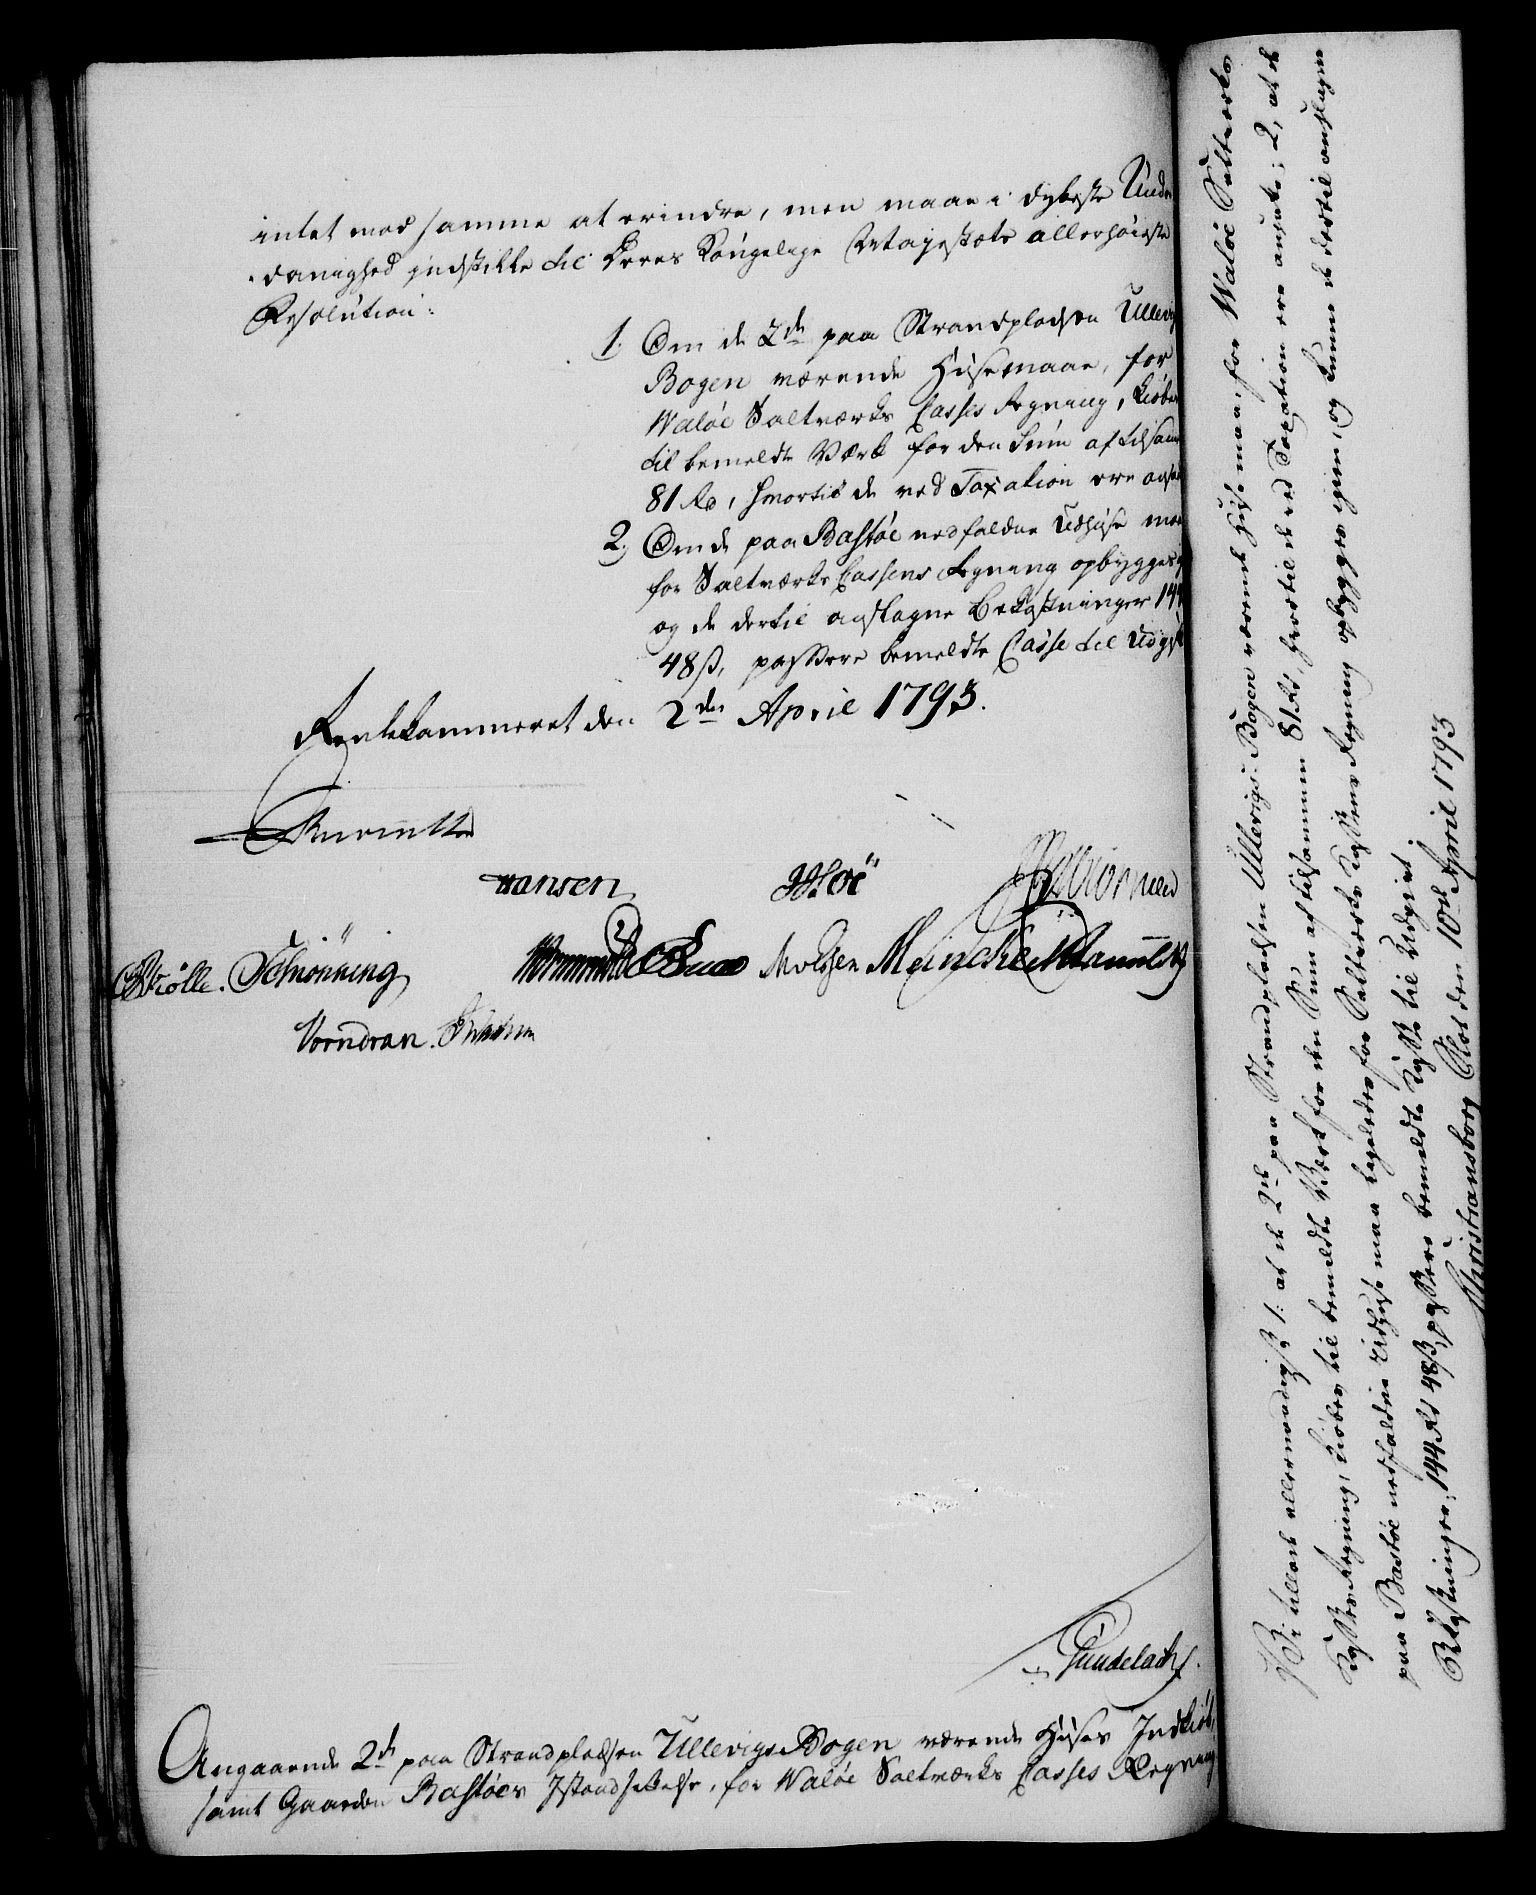 intet mod samme at erindre, men maae i dybeste Under
danighed indstille til Deres Kongelige Majestæts allerhöieste
Resolution:
1. Om de 2de paa Strandpladsen Ullevigs
Bogen værende Huse maae, for
Walöe Saltværks Casses Regning, kiöbes
til bemeldte Værk for den Sum af tilsammen
81 Rd, hvortil de ved Taxation ere ansatte
2, Om de paa Bastöe nedfaldne Udhuse maae
for Saltværks Cassens Regning opbygges igien
og de dertil anslagne Bekostninger 144
48 ß, passere bemeldte Casse til Udgivt
Rentekammeret den 2den April 1793.
Hansen
Schiönning
Meincke
Vorndran.
Gundelach.
Angaaende 2de paa Strandpladsen Ullevigs Bogen værende Huses Indkiöb,
samt Gaarden Bastöes Istandsættelse, for Walöe Saltværks Casses Regning
Vi tillade allernaadigst 1: at de 2de paa Strandpladsen Ullevigs-Bogen værende Huse maa, for Walöe Saltværks
Casses Regning, kiöbes til bemeldte Værk for den Sum af tilsammen 81 Rd, hvortil de ved Taxation ere ansatte; 2, at de
paa Bastöe nedfaldne Udhuse maa ligeledes for Saltværks Cassens Regning opbygges igien, og kunne de dertil anslagne
Bekostninger, 144 Rd 48 ß, passere bemeldte Casse til Udgivt.
Christiansborg Slot den 10de April 1793